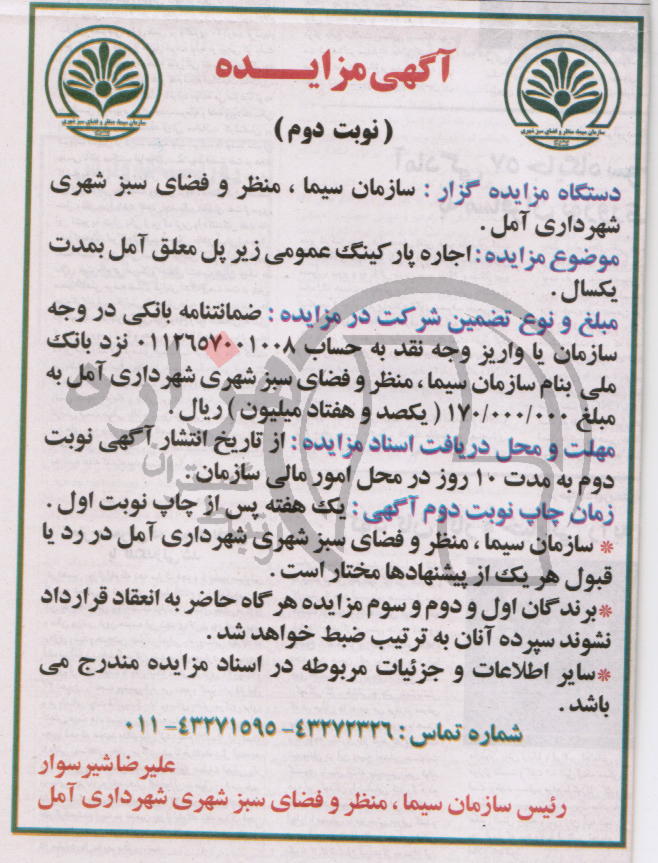 آگهی مزایـــده
(نوبت دوم)
سازمان سیما، منظر و فضای سبز شهری
سازمان سیما، منظر و فضای سبز شهری
دستگاه مزایده گزار : سازمان سیما ، منظر و فضای سبز شهری
شهرداری آمل .
موضوع مزایده : اجاره پارکینگ عمومی زیر پل معلق آمل بمدت
یکسال .
مبلغ و نوع تضمین شرکت در مزایده : ضمانتنامه بانکی در وجه
سازمان یا واریز وجه نقد به حساب ۰۱۱۲۶۵۷۰۰۱۰۰۸ نزد بانک
ملی بنام سازمان سیما ، منظر و فضای سبز شهری شهرداری آمل به
مبلغ ۱۷۰/۰۰۰/۰۰۰ ( یکصد و هفتاد میلیون ) ریال .
مهلت و محل دریافت اسناد مزایده : از تاریخ انتشار آگهی نوبت
دوم به مدت ۱۰ روز در محل امور مالی سازمان .
زمان چاپ نوبت دوم آگهی : یک هفته پس از چاپ نوبت اول .
* سازمان سیما ، منظر و فضای سبز شهری شهرداری آمل در رد یا
قبول هر یک از پیشنهادها مختار است .
* برندگان اول و دوم و سوم مزایده هر گاه حاضر به انعقاد قرارداد
نشوند سپرده آنان به ترتیب ضبط خواهد شد .
* سایر اطلاعات و جزئیات مربوطه در اسناد مزایده مندرج می
باشد .
شماره تماس : ۴۳۲۷۲۳۲۶- ۴۳۲۷۱۵۹۵- ۰۱۱
علیرضا شیرسوار
رئیس سازمان سیما ، منظر و فضای سبز شهری شهرداری آمل
هزاره